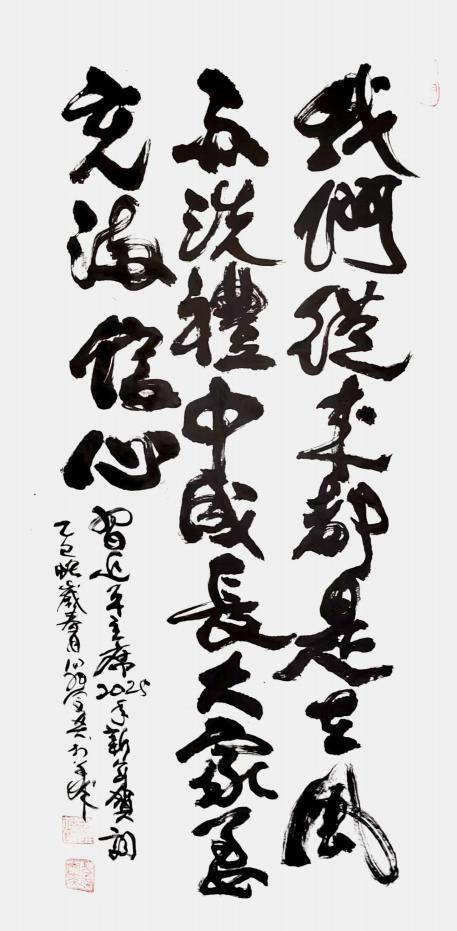 我們從來都是在風
雨洗禮中成長大家要
充滿信心
習近平主席2025年新年賀詞
乙巳蛇歲春月